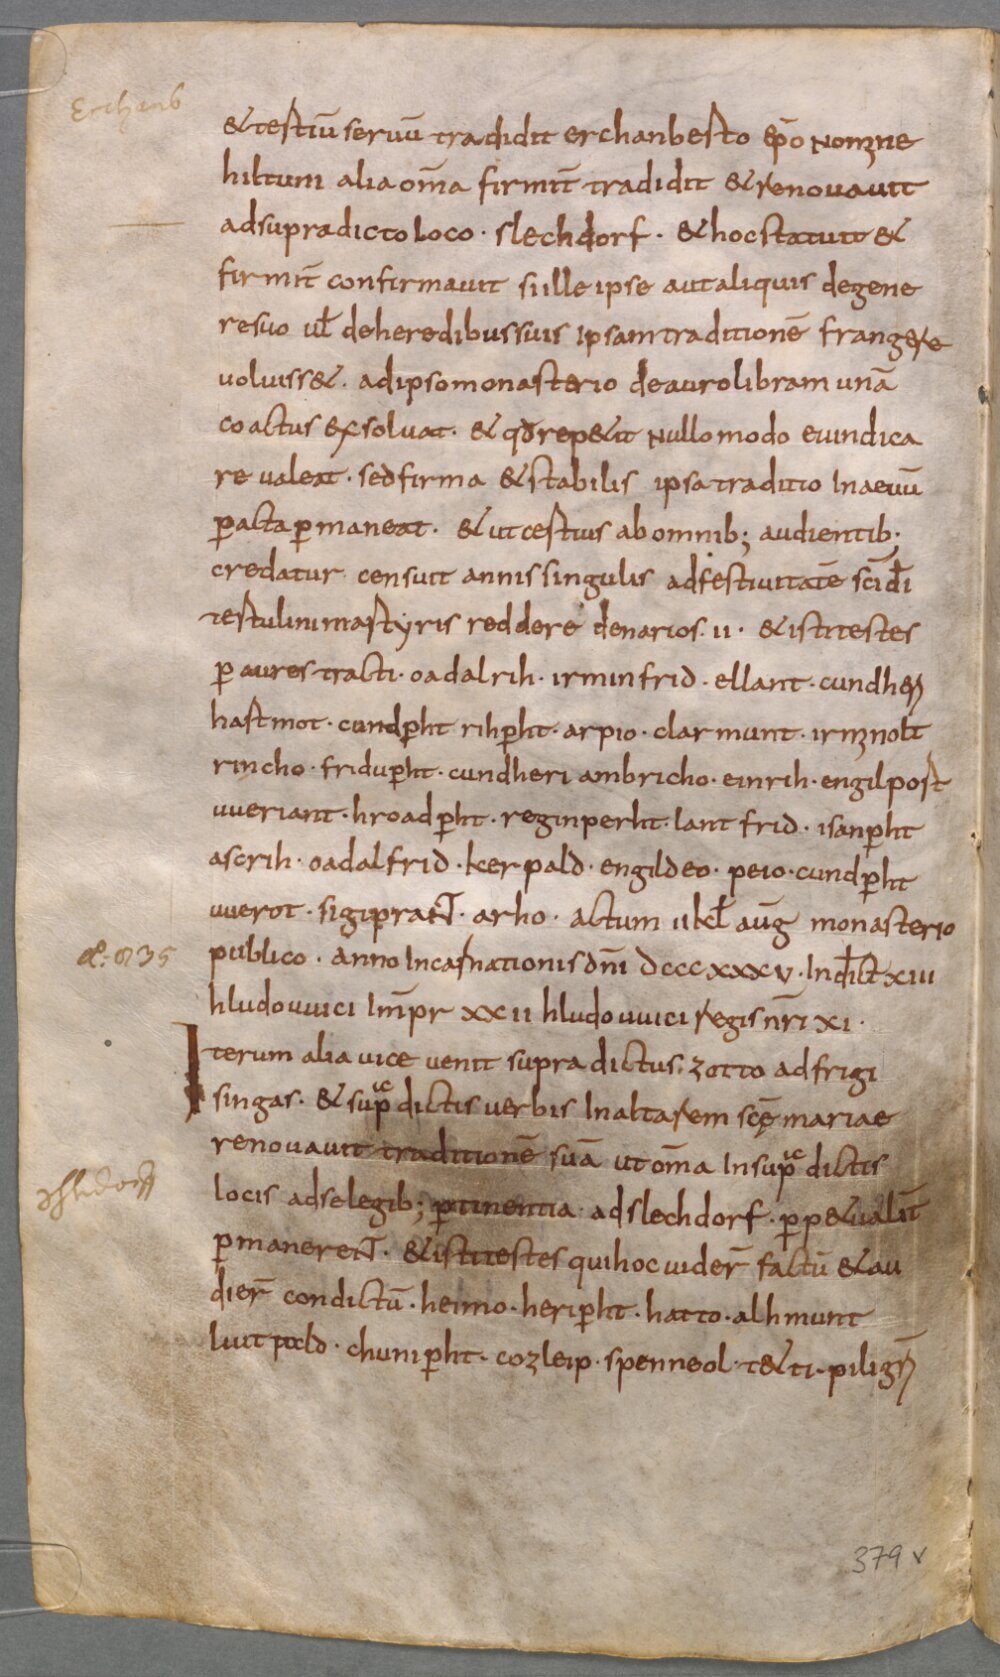 Erchanb
& testiū seruū tradidit erchanbesto ep̄o nomine
hiltuni alia om̄a firmit̄ tradidit & renouauit
adsupradicto loco · slechdorf · & hoc statuit &
firmit̄ confirmauit si ille ipse aut aliquis degene
re suo ul̄ deheredibus suis ipsam traditionē frangere
uoluiss& · adipso monasterio deauro libram unā
coactus exsoluat · & qđ rep&it nullomodo euindica
re ualeat · sed firma & stabilis ipsa traditio in aeuū
ꝑacta ꝑmaneat · & ut cestius abomnib; audientib;
credatur censuit annis singulis adfestiuitatē sc̄i dī
testulini mastyris reddere denarios · ii · & isti testes
ꝑ aures tracti · oadalrih · irminfrid · ellant · cundheri
hastmot · cundꝑht rihꝑht · arpio · clarmunt · irminolt
rincho · friduꝑht · cundheri ambricho · einrih · engilpost
uueriant · hroadꝑht · reginperht · lantfrid · isanꝑht
ascrih · oadalfrid · kerpald · engildeo · peio · cundꝑht
uuerot · sigiprant · arho · actum ii kl̄ aūg monasterio
d. 835
publico · anno incarnationis dn̄i dcccxxxv · indict xiii
hludouuici im̄pr xxii hludouuici regis nr̄i xi ·
Iterum alia uice uenit supra dictus · zotto ad frigi
singas · & supͣ dictis uerbis in altarem scę̄ mariae
renouauit traditionē suā ut om̄a in supͣ dictis
Schledorff
locis adse legib; ꝑtinentia · ad slechdorf · ꝑp&ualit̄
ꝑmanerent · & isti testes qui hoc uider̄ factū & au
dier̄ condictū · heimo · heriꝑht · hatto · alhmunt
liutpald · chuniꝑht · cozleip · spenneol · t&ti · piligrī
379 v